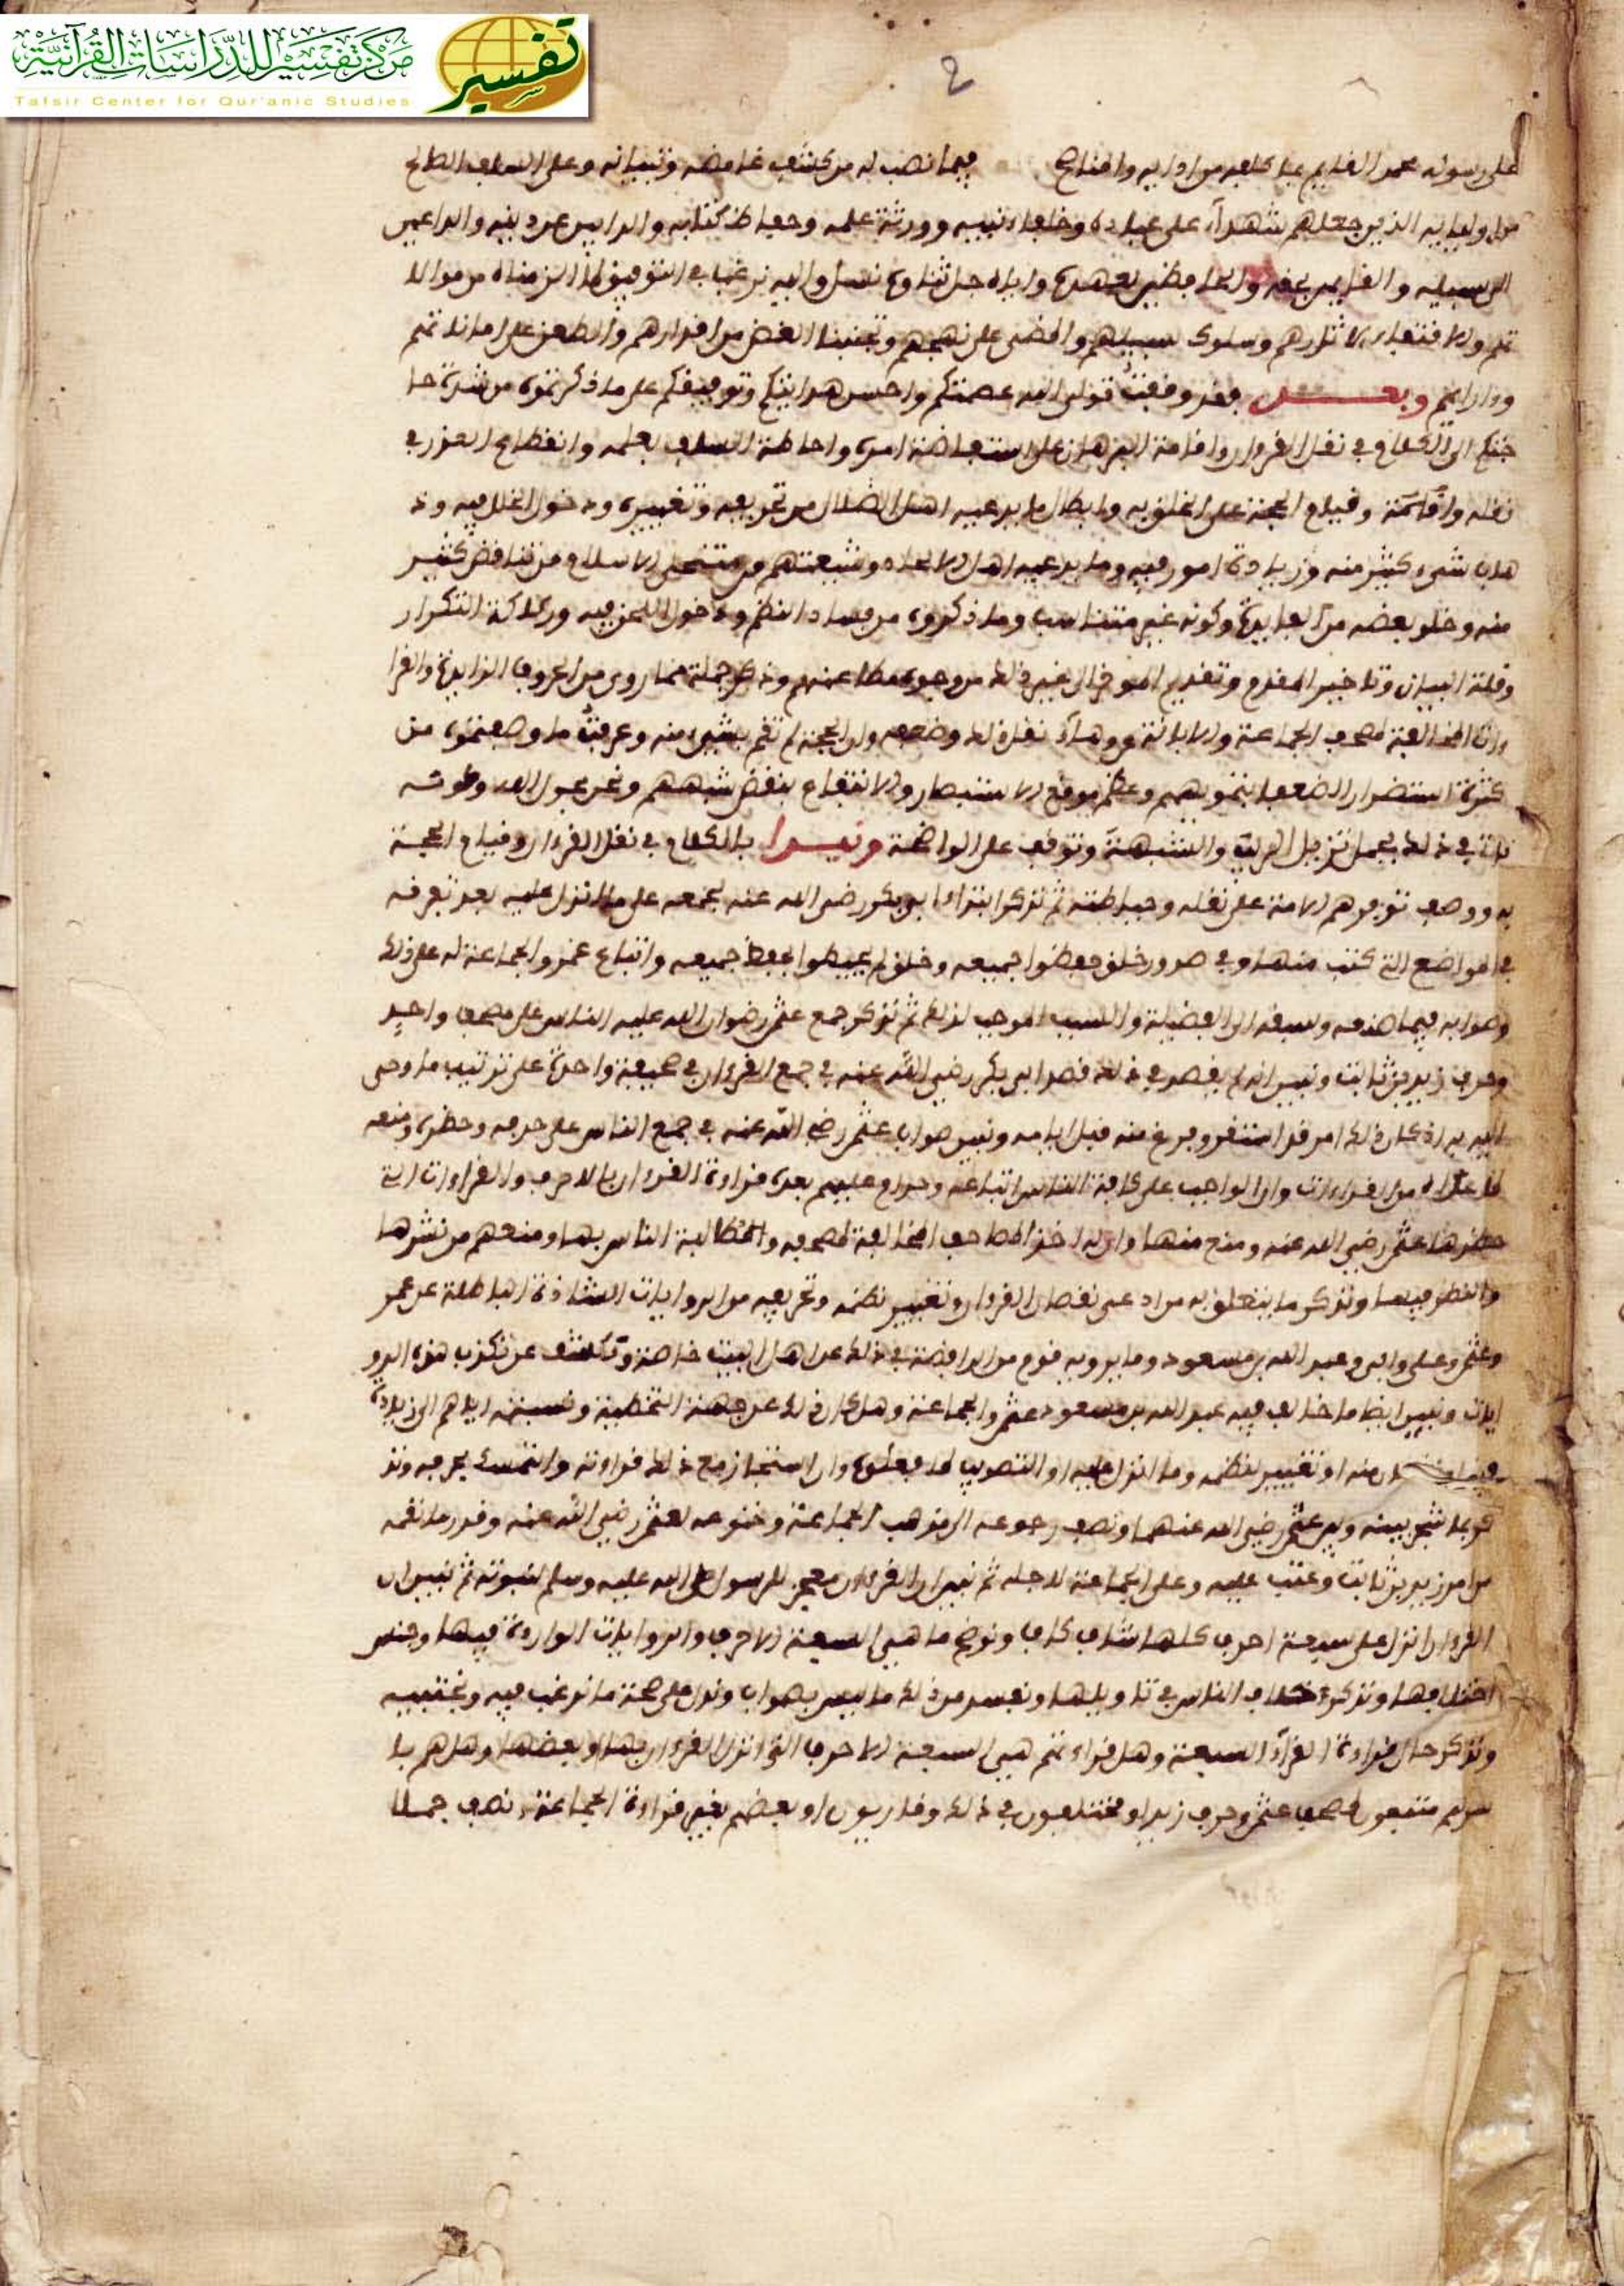 مركز تفسير للدراسات القرآنية
تفسير
Tafsir Center for Qur'anic Studies
2
على رسوله محمد القايم بما كلفه من ادايه وايضاح فيما نصب له من كشف غامضه وتبيانه وعلى السلف الصالح
من اوليايه الذين جعلهم شهدآء على عباده وخلفاء نبيه وورثة علمه وحفاظ كتابه والذابين عن دينه والداعين
الى سبيله والقايمين بحقه والحافظين لعهده واياه جل ثناوه نسل واليه نرغب في التوفيق لما الزمناه من موالا
تهم والاقتفاء لاثارهم وسلوك سبيلهم والمضي على نهجهم وتجنبنا الغض من اقدارهم والطعن على اماناتهم
وارايهم وبعد فقد وقفت تولى الله عصمتكم واحسن هدايتكم وتوفيقكم على ما ذكرتموه من شدة حا
جتكم الى الكلام في نقل القرءان واقامة البرهان على استفاضة امره واحاطة السلف بعلمه وانقطاع العذر في
نقله واقامته وقيام الحجة على الخلق به وابطال ما يدعيه اهل الضلال من تحريفه وتغييره ودخول الخلل فيه وذ
هاب شيء كثير منه وزيادة امور فيه وما يدعيه اهل الالحاد وشيعتهم من منتحلي الاسلام من تناقض كثير
منه وخلو بعضه من الفايدة وكونه غير متناسب وما ذكروه من فساد النظم ودخول اللحن فيه وركاكة التكرار
وقلة البيان وتاخير المقدم وتقديم الموخر الى غير ذلك من وجوه مطاعنهم وذكر جملة مما روي من الحروف الزايدة والقرا
ءات المخالفة لمصحف الجماعة والابانة عن وهآء نقل ذلك وضعفه وان الحجة لم تقم بشيء منه وعرفت ما وصفتموه من
كثرة استضرار الضعفا بتمويههم وعظم موقع الاستبصار والانتفاع بنقض شبههم ونحن بحول الله وطوله
ناتي في ذلك بجمل تزيل الريب والشبهة وتوقف على الواضحة ونبدا بالكلام في نقل القرءان وقيام الحجة
به ووصف توفر هم الامة على نقله وحياطته ثم نذكر ابتداء ابو بكر رضي الله عنه بجمعه على ما انزل عليه بعد تفرقه
في المواضع التي كتب فيها وفي صدور خلق حفظوا جميعه وخلق لم يحيطوا بحفظ جميعه واتباع عمر والجماعة له على ذلك
وصوابه فيما صنعه وسبقه الى الفضيلة والسبب الموجب لذلك ثم نذكر جمع عثمن رضوان الله عليه الناس على مصحف واحد
وحرف زيد بن ثابت ونبين انه لم يقصد في ذلك قصد ابي بكر رضي الله عنه في جمع القرءان في صحيفة واحدة على ترتيب ما اوحي
اليه به اذ كان ذلك امر قد استقر وفرغ منه قبل ايامه ونبين صواب عثمن رضي الله عنه في جمع الناس على حرفه وحظره ومنعه
لما عداه من القراءات وان الواجب على كافة الناس اتباعه وحرام عليهم بعده قراءة القرءان بالاحرف والقراءات التي
حظرها عثمن رضي الله عنه ومنع منها وان له اخذ المصاحف المخالفة لمصحفه والمطالبة الناس بها ومنعهم من نشرها
والنظر فيها ونذكر ما يتعلق به من ادعى نقصان القرءان وتغيير نظمه وتحريفه من الروايات الشاذة الباطلة عن عمر
وعثمن وعلي وابي وعبد الله بن مسعود وما يرويه قوم من الرافضة في ذلك عن اهل البيت خاصة وتكشف عن تكذب هذه الرو
ايات ونبين ايضا ما خالف فيه عبد الله بن مسعود عثمن والجماعة وهل كان ذلك عن جهة التخطية ونسبته اياهم الى زيادة
منه او تغيير نظمه وما انزل عليه او التصويب لما فعلوه وان استجاز مع ذلك قراءته والتمسك بحرفه ونذ
كر ما شجر بينه وبين عثمن رضي الله عنهما ونصف رجوعه الى مذهب الجماعة وخنوعه لعثمن رضي الله عنه وقدر ما نقمه
من امر زيد بن ثابت وعتب عليه وعلى الجماعة لاجله ثم نبين ان القرءان معجز للرسول صلى الله عليه وسلم لنبوته ثم نبين ان
القرءان انزل على سبعة احرف كلها شاف كاف ونوضح ما هي السبعة الاحرف والروايات الواردة فيها وجنس
اختلافها ونذكر خلاف الناس في تاويلها ونفسد من ذلك ما ليس بصواب وندل على صحة ما نرغب فيه ونجتبيه
ونذكر حال قراءة القرآء السبعة وهل قراءتهم هي السبعة الاحرف التي انزل القرءان بها او بعضها وهل هم با
سرهم متبعون لمصحف عثمن وحرف زيد او مختلفون في ذلك وقاريون او بعضهم بغير قراءة الجماعة ونصف جملا